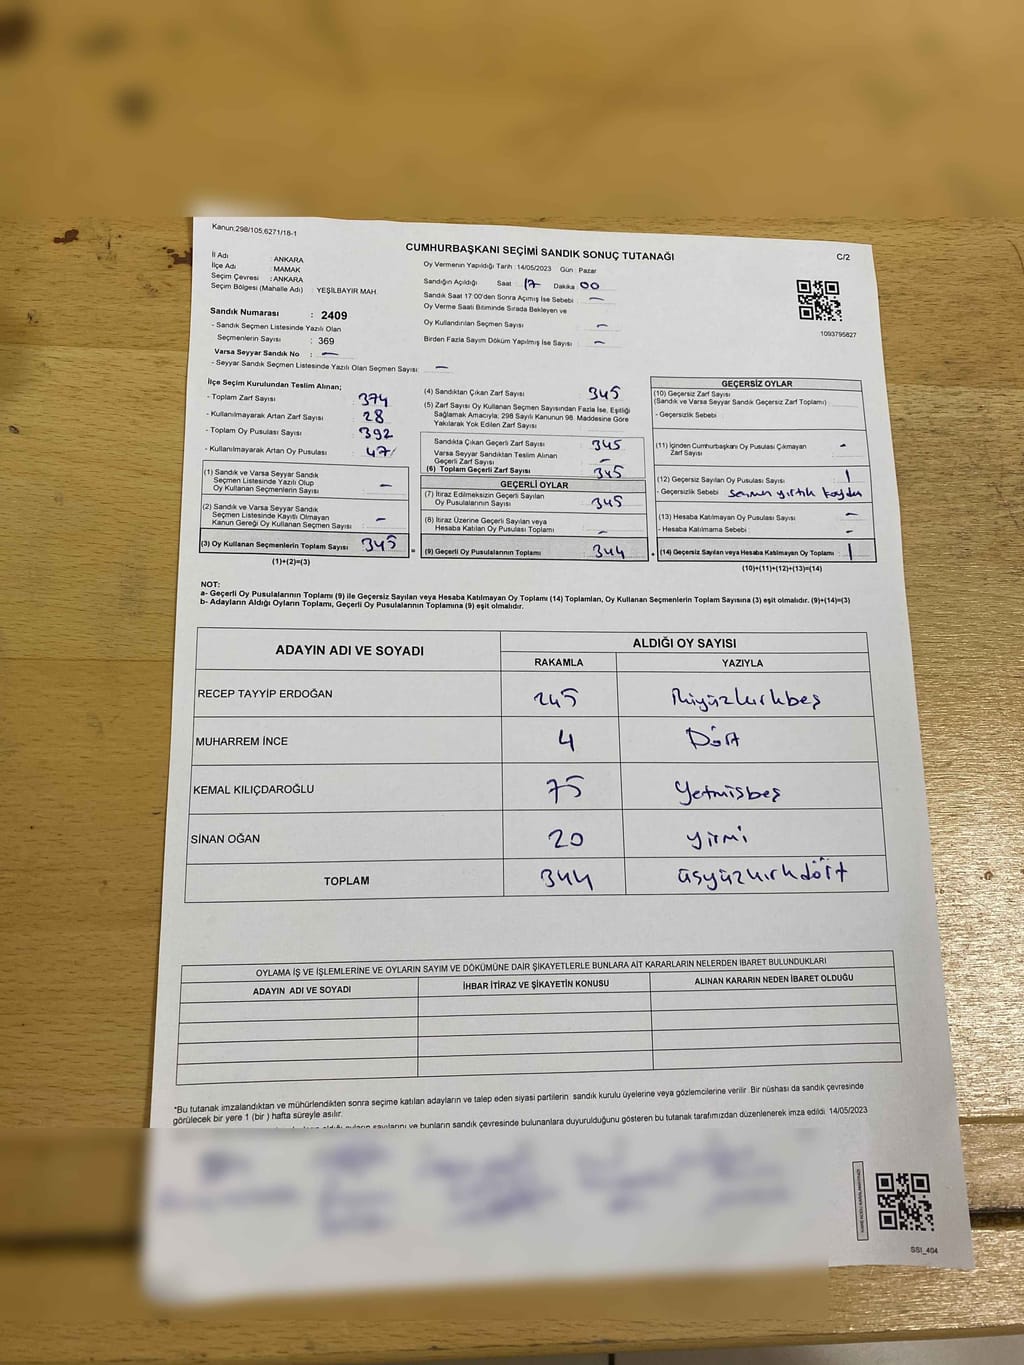 Kanun:298/105,6271/18-1
CUMHURBAŞKANI SEÇİMİ SANDIK SONUÇ TUTANAĞI
C/2
İl Adı : ANKARA
İlçe Adı : MAMAK
Seçim Çevresi : ANKARA
Seçim Bölgesi (Mahalle Adı) : YEŞİLBAYIR MAH.
Oy Vermenin Yapıldığı Tarih : 14/05/2023 Gün : Pazar
Sandığın Açıldığı Saat 17 Dakika 00
Sandık Saat 17:00'den Sonra Açımış İse Sebebi : —
Oy Verme Saati Bitiminde Sırada Bekleyen ve
Oy Kullandırılan Seçmen Sayısı : —
Birden Fazla Sayım Döküm Yapılmış İse Sayısı : —
1093795827
Sandık Numarası : 2409
- Sandık Seçmen Listesinde Yazılı Olan
Seçmenlerin Sayısı : 369
Varsa Seyyar Sandık No : —
- Seyyar Sandık Seçmen Listesinde Yazılı Olan Seçmen Sayısı: —
İlçe Seçim Kurulundan Teslim Alınan;
- Toplam Zarf Sayısı : 374
- Kullanılmayarak Artan Zarf Sayısı : 28
- Toplam Oy Pusulası Sayısı : 392
- Kullanılmayarak Artan Oy Pusulası : 47
(1) Sandık ve Varsa Seyyar Sandık
Seçmen Listesinde Yazılı Olup
Oy Kullanan Seçmenlerin Sayısı : —
(2) Sandık ve Varsa Seyyar Sandık
Seçmen Listesinde Kayıtlı Olmayan
Kanun Gereği Oy Kullanan Seçmen Sayısı : —
(3) Oy Kullanan Seçmenlerin Toplam Sayısı : 345
(1)+(2)=(3)
(4) Sandıktan Çıkan Zarf Sayısı : 345
(5) Zarf Sayısı Oy Kullanan Seçmen Sayısından Fazla İse, Eşitliği
Sağlamak Amacıyla; 298 Sayılı Kanunun 98. Maddesine Göre
Yakılarak Yok Edilen Zarf Sayısı :
Sandıkta Çıkan Geçerli Zarf Sayısı : 345
Varsa Seyyar Sandıktan Teslim Alınan
Geçerli Zarf Sayısı : —
(6) Toplam Geçerli Zarf Sayısı : 345
GEÇERLİ OYLAR
(7) İtiraz Edilmeksizin Geçerli Sayılan
Oy Pusulalarının Sayısı : 345
(8) İtiraz Üzerine Geçerli Sayılan veya
Hesaba Katılan Oy Pusulası Toplamı : —
= (9) Geçerli Oy Pusulalarının Toplamı : 344
GEÇERSİZ OYLAR
(10) Geçersiz Zarf Sayısı
(Sandık ve Varsa Seyyar Sandık Geçersiz Zarf Toplamı) :
- Geçersizlik Sebebi :
(11) İçinden Cumhurbaşkanı Oy Pusulası Çıkmayan : -
Zarf Sayısı
(12) Geçersiz Sayılan Oy Pusulası Sayısı : 1
- Geçersizlik Sebebi : yırtık
(13) Hesaba Katılmayan Oy Pusulası Sayısı : —
- Hesaba Katılmama Sebebi : —
+ (14) Geçersiz Sayılan veya Hesaba Katılmayan Oy Toplamı : 1
(10)+(11)+(12)+(13)=(14)
NOT:
a- Geçerli Oy Pusulalarının Toplamı (9) ile Geçersiz Sayılan veya Hesaba Katılmayan Oy Toplamı (14) Toplamları, Oy Kullanan Seçmenlerin Toplam Sayısına (3) eşit olmalıdır. (9)+(14)=(3)
b- Adayların Aldığı Oyların Toplamı, Geçerli Oy Pusulalarının Toplamına (9) eşit olmalıdır.
ADAYIN ADI VE SOYADI ALDIĞI OY SAYISI
RAKAMLA YAZIYLA
RECEP TAYYİP ERDOĞAN 245 İkiyüzkırkbeş
MUHARREM İNCE 4 Dört
KEMAL KILIÇDAROĞLU 75 Yetmişbeş
SİNAN OĞAN 20 yirmi
TOPLAM 344 üsyüzkırkdört
OYLAMA İŞ VE İŞLEMLERİNE VE OYLARIN SAYIM VE DÖKÜMÜNE DAİR ŞİKAYETLERLE BUNLARA AİT KARARLARIN NELERDEN İBARET BULUNDUKLARI
ADAYIN ADI VE SOYADI İHBAR İTİRAZ VE ŞİKAYETİN KONUSU ALINAN KARARIN NEDEN İBARET OLDUĞU
*Bu tutanak imzalandıktan ve mühürlendikten sonra seçime katılan adayların ve talep eden siyasi partilerin sandık kurulu üyelerine veya gözlemcilerine verilir .Bir nüshası da sandık çevresinde
görülecek bir yere 1 (bir ) hafta süreyle asılır.
sayılarını ve bunların sandık çevresinde bulunanlara duyurulduğunu gösteren bu tutanak tarafımızdan düzenlenerek imza edildi. 14/05/2023
SSI_404